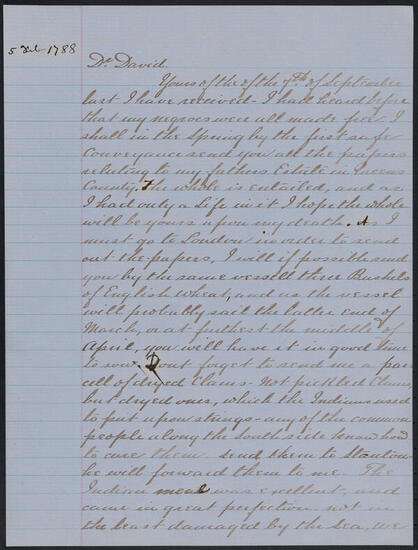 5 Feb 1788
Dr. David.
Yours of the of the 7th of September
last I have received - I had heard before
that my negroes were all made free. I
shall in the Spring by the first safe
Conveyance send you all the papers
relating to my fathers Estate in Queens
County. The whole is entailed, and as
I had only a Life in it I hope the whole
will be yours upon my death. As I
must go to London in order to send
out the papers, I will if possible send
you by the same vessell three Bushels
of English Wheat, and as the vessel
will probably sail the latter end of
March, or at furthest the middle of
April, you will have it in good time
to sow. Dont forget to send me a par
cell of dryed Clams - Not pickled Clams
but dryed ones, which the Indians used
to put upon strings - any of the common
people along the South side know how
to cure them. Send them to Stanton
he will forward them to me. The
Indian meal was excellent, and
came in great perfection not in
the least damaged by the Sea, we